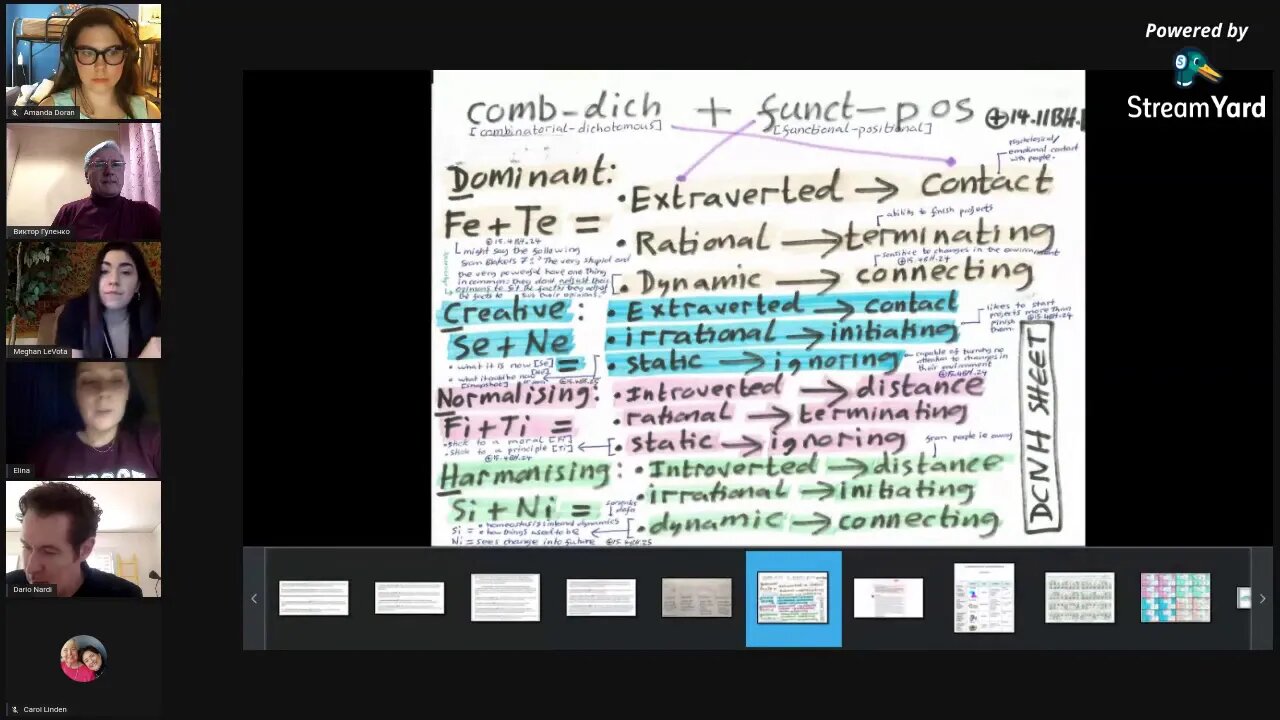 Powered by
StreamYard
Amanda Doran
Виктор Гуленко
Meghan LeVota
Elina
Dario Nardi
Carol Linden
comb-dich + funct-pos
[combinatorial-dichotomous] [functional-positional]
psychological/
emotional contact
with people.
Dominant:
Fe+Te =
• Extraverted → contact
ability to finish projects
• Rational → terminating
sensitive to changes in the environment
• Dynamic → connecting
might say the following
the very powerful have one thing
Creative:
Se+Ne =
• Extraverted → contact
• irrational → initiating
likes to start
projects more than
finish
them.
• static → ignoring
capable of turning no
attention to changes in
their environment
• what it is now [Se]
Normalising:
Fi+Ti =
• Introverted → distance
• rational → terminating
• static → ignoring
• stick to a moral [Fi]
• stick to a principle [Ti]
from people ie away
Harmonising:
Si + Ni =
• Introverted → distance
• irrational → initiating
• dynamic → connecting
Si = • how things used to be
Ni = sees change into future
DCNH SHEET